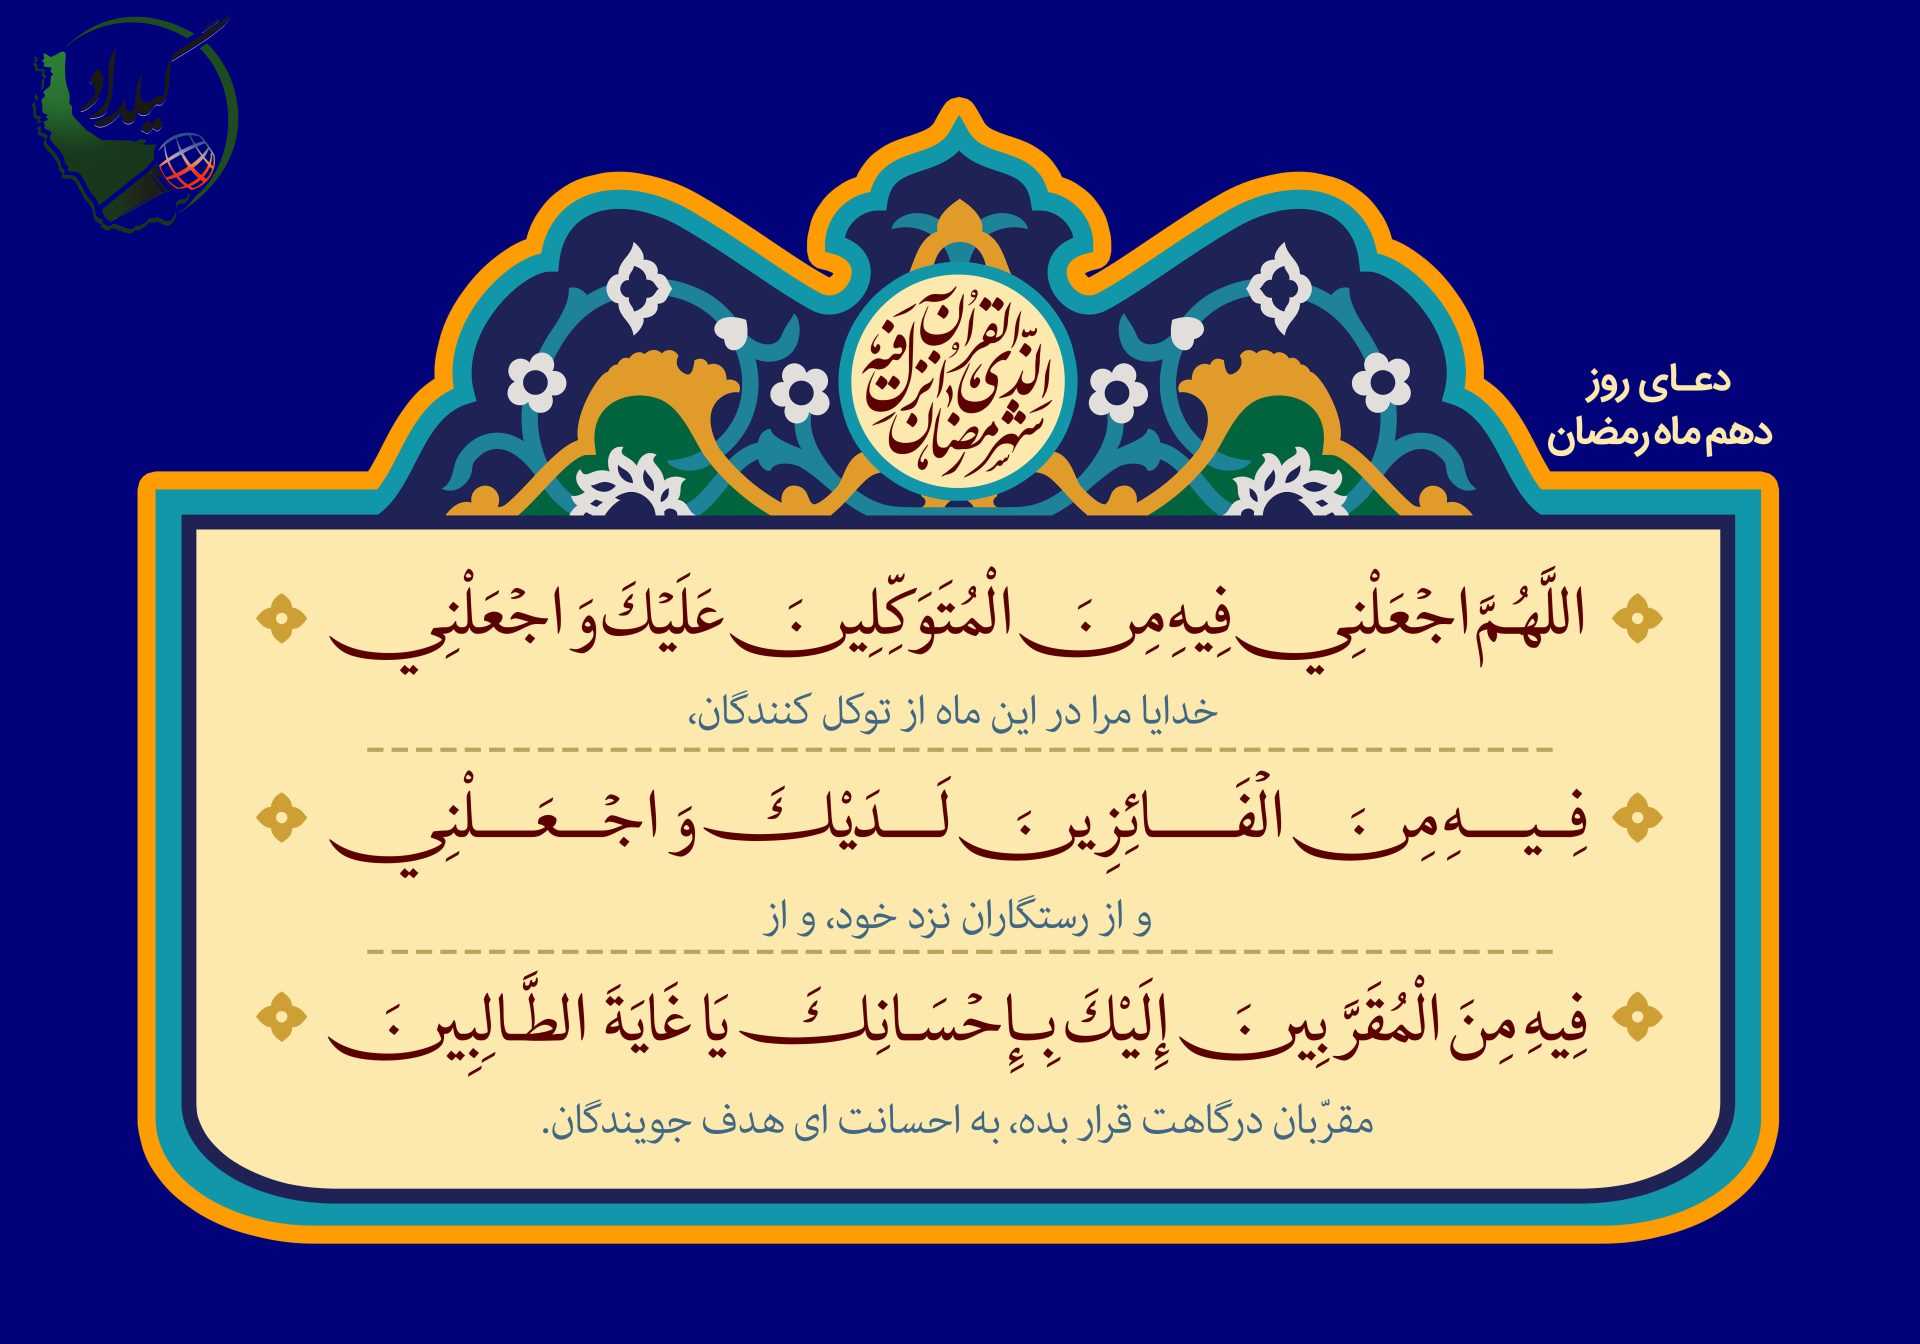 گیلداد
شهر رمضان الذی انزل فیه القرآن
دعای روز
دهم ماه رمضان
اللَّهُمَّ اجْعَلْنِي فِيهِ مِنَ الْمُتَوَكِّلِينَ عَلَيْكَ وَ اجْعَلْنِي
خدایا مرا در این ماه از توکل کنندگان،
فِيهِ مِنَ الْفَائِزِينَ لَدَيْكَ وَ اجْعَلْنِي
و از رستگاران نزد خود، و از
فِيهِ مِنَ الْمُقَرَّبِينَ إِلَيْكَ بِإِحْسَانِكَ يَا غَايَةَ الطَّالِبِينَ
مقرّبان درگاهت قرار بده، به احسانت ای هدف جویندگان.